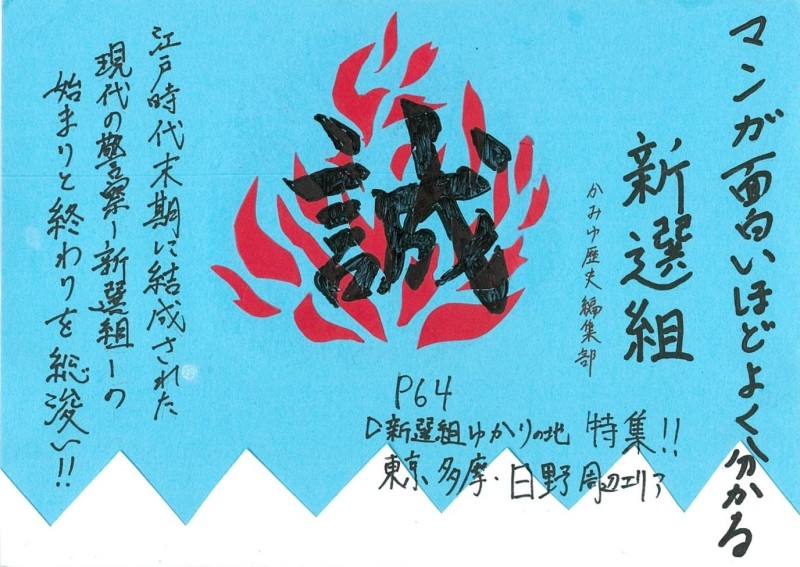 マンガ面白いほどよく分かる
新選組
かみゆ歴史編集部
誠
P64
▷新選組ゆかりの地 特集!!
東京 多摩・日野周辺エリア
江戸時代末期に結成された
現代の警察ー新選組ーの
始まりと終わりを総浚い!!